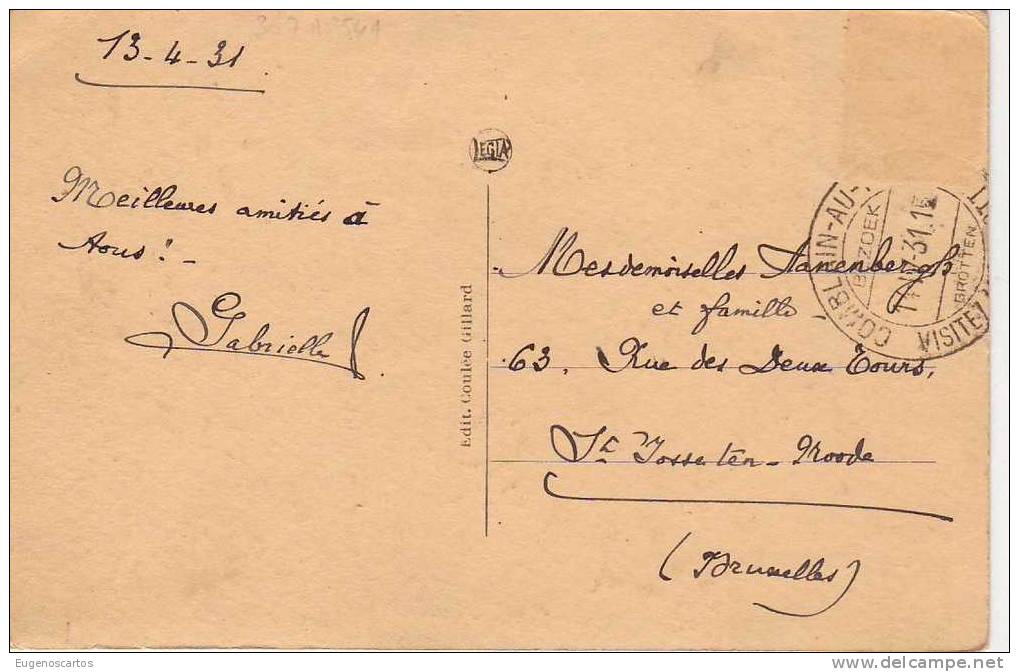 13-4-31
Meilleures amitiés à
tous! -
Gabrielle
LEGIA
Edit. Coulée Gillard
Mesdemoiselles
et famille
63, Rue des Deux Tours,
St Josse ten-Noode
(Bruxelles)
COMBLAIN-AU-
BEZOEK
GROTTEN
VISITEZ
Eugenoscartos
www.delcampe.net